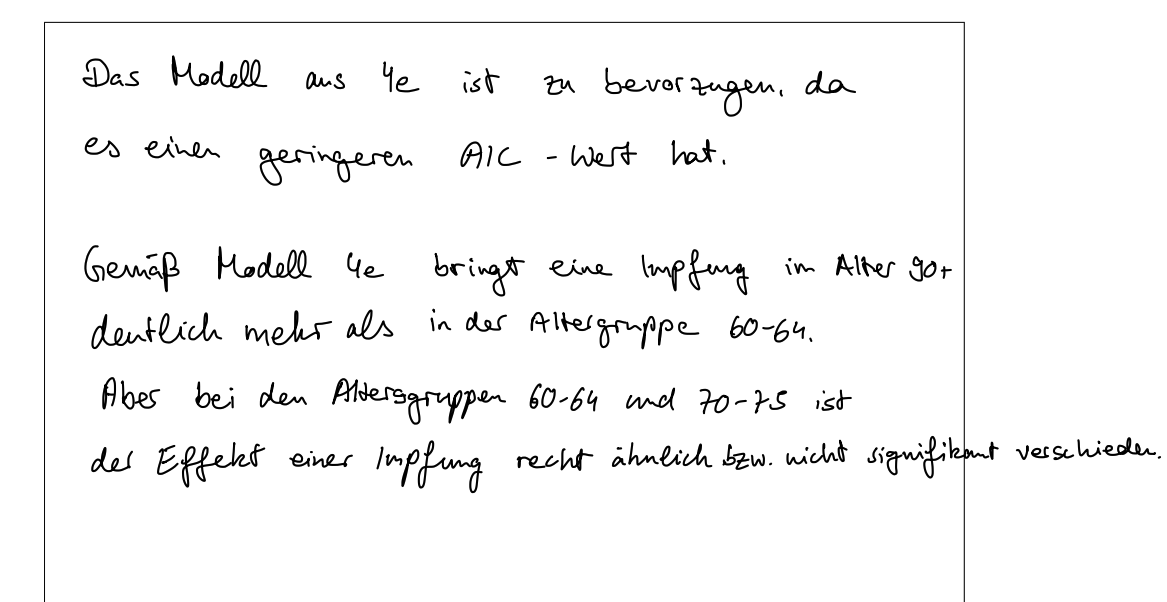 Das Modell aus 4e ist zu bevorzugen, da
es einen geringeren AIC - Wert hat.
Gemäß Modell 4e bringt eine Impfung im Alter 90+
deutlich mehr als in der Altergruppe 60-64.
Aber bei den Altersgruppen 60-64 und 70-75 ist
der Effekt einer Impfung recht ähnlich bzw. nicht signifikant verschieden.